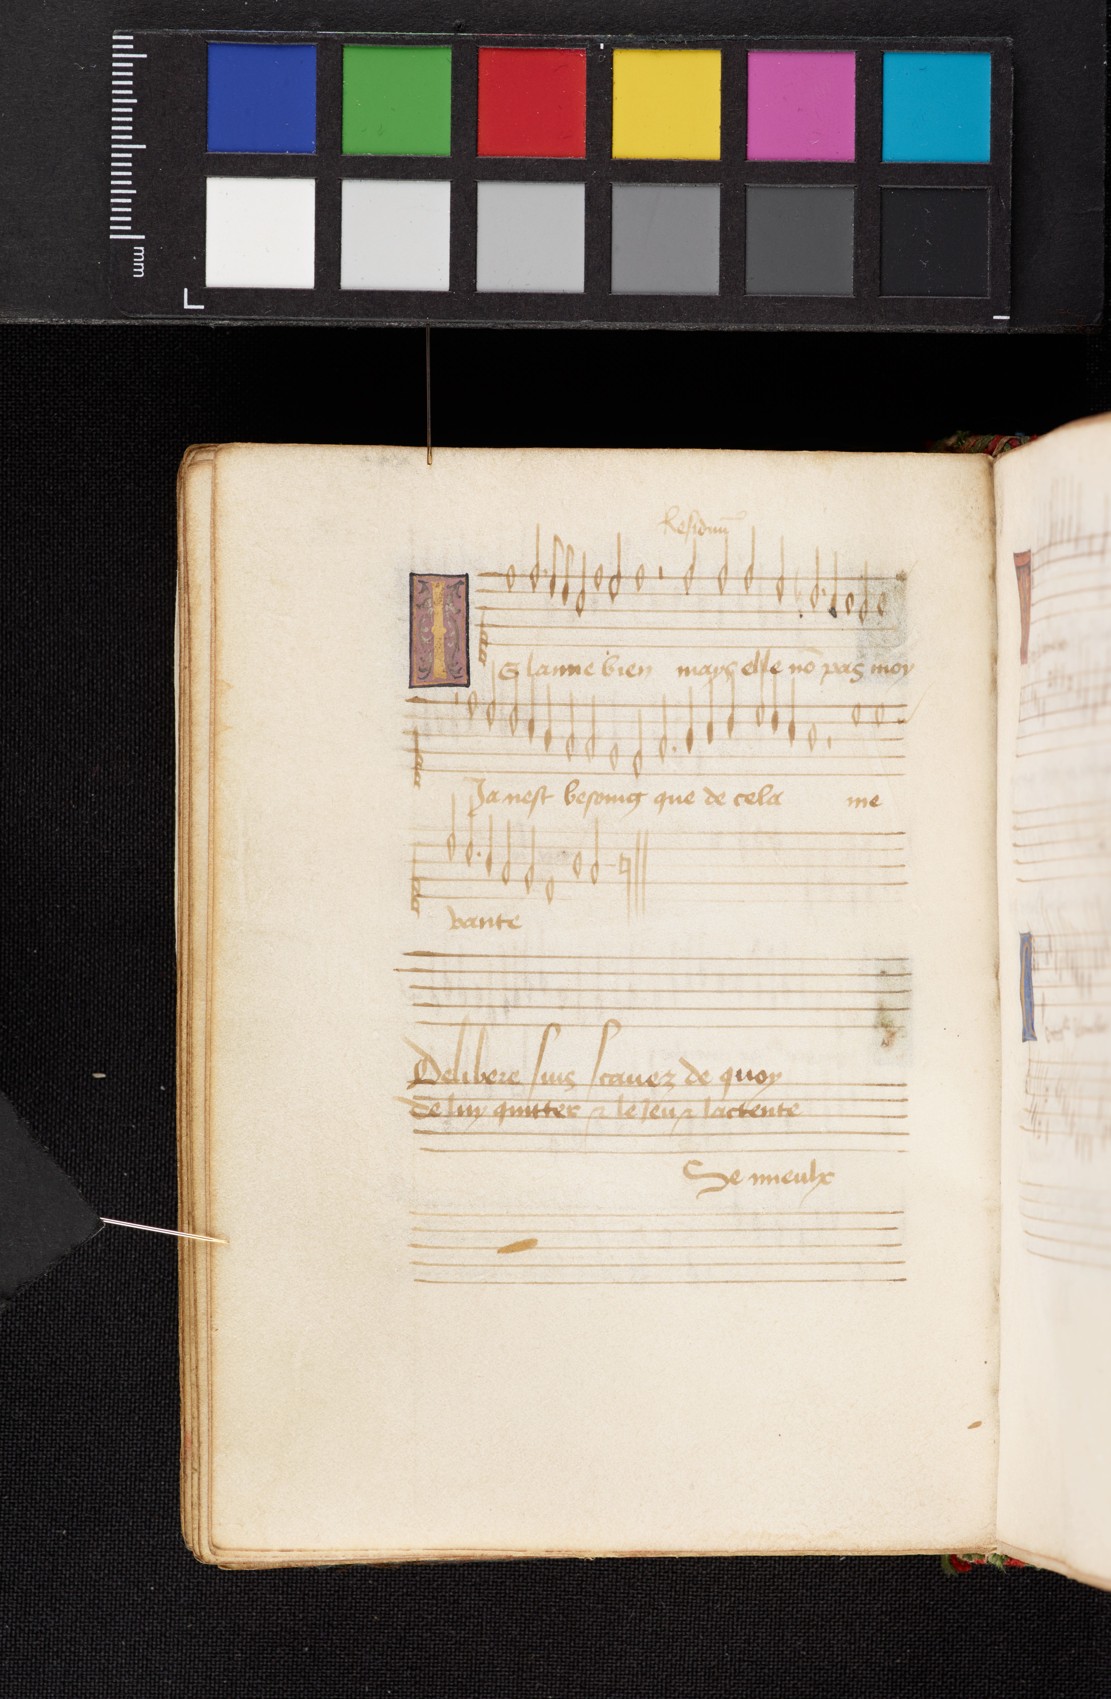 mm
Residuũ
IE laime bien mays elle nõ pas moy
Ja nest besoing que de cela me
vante
Delibere suis scauez de quoy
de luy quitter le Jeu lactente
Se mieulx